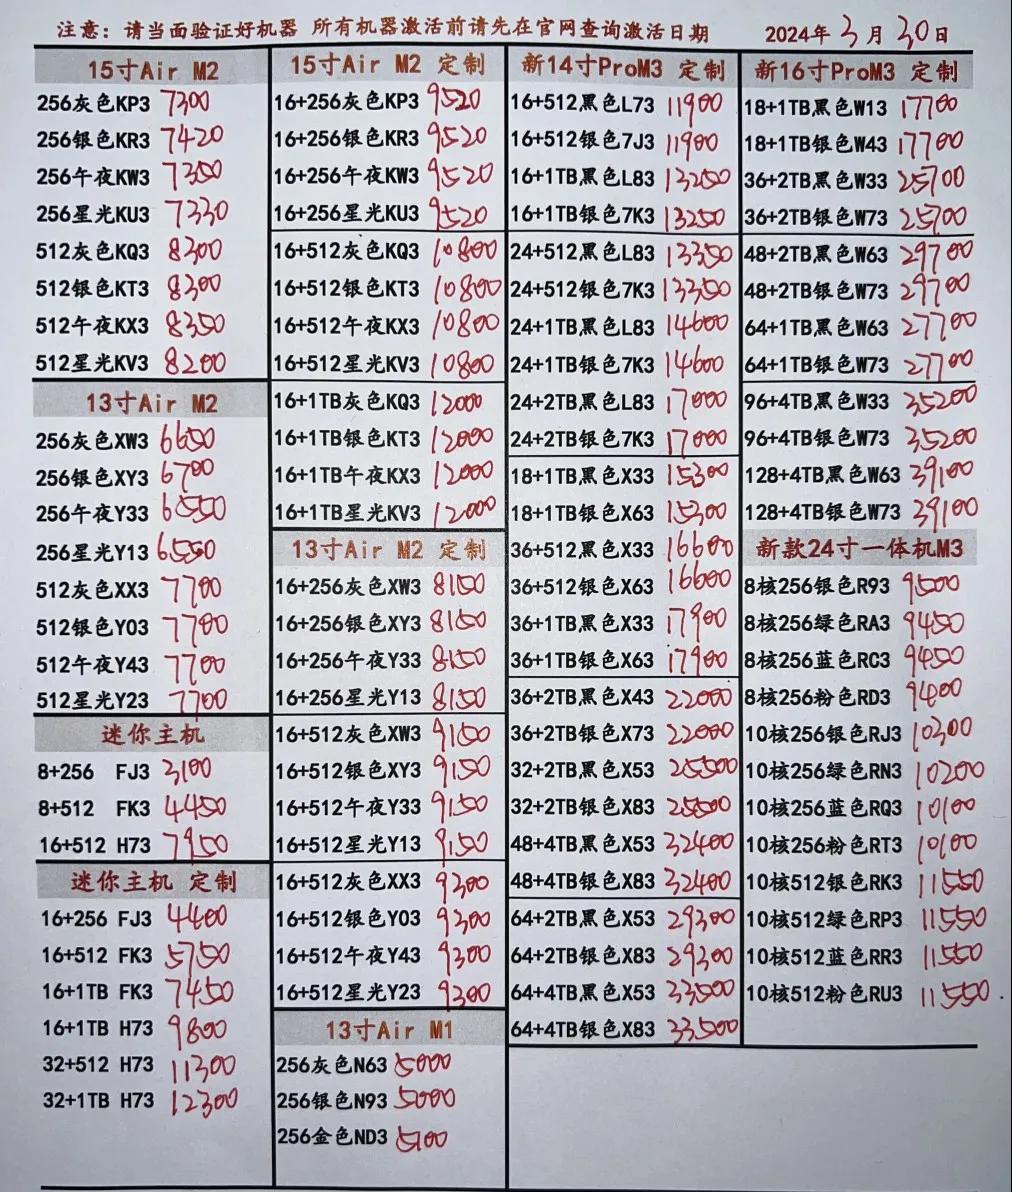 注意：请当面验证好机器 所有机器激活前请先在官网查询激活日期 2024年3月30日
15寸Air M2
256灰色KP3 7300
256银色KR3 7420
256午夜KW3 7350
256星光KU3 7330
512灰色KQ3 8300
512银色KT3 8300
512午夜KX3 8350
512星光KV3 8200
13寸Air M2
256灰色XW3 6650
256银色XY3 6700
256午夜Y33 6550
256星光Y13 6550
512灰色XX3 7700
512银色Y03 7700
512午夜Y43 7700
512星光Y23 7700
迷你主机
8+256 FJ3 3100
8+512 FK3 4450
16+512 H73 7950
迷你主机 定制
16+256 FJ3 4400
16+512 FK3 5750
16+1TB FK3 7450
16+1TB H73 9800
32+512 H73 11300
32+1TB H73 12300
15寸Air M2 定制
16+256灰色KP3 9520
16+256银色KR3 9520
16+256午夜KW3 9520
16+256星光KU3 9520
16+512灰色KQ3 10800
16+512银色KT3 10800
16+512午夜KX3 10800
16+512星光KV3 10800
16+1TB灰色KQ3 12000
16+1TB银色KT3 12000
16+1TB午夜KX3 12000
16+1TB星光KV3 12000
13寸Air M2 定制
16+256灰色XW3 8150
16+256银色XY3 8150
16+256午夜Y33 8150
16+256星光Y13 8150
16+512灰色XW3 9150
16+512银色XY3 9150
16+512午夜Y33 9150
16+512星光Y13 9150
16+512灰色XX3 9300
16+512银色Y03 9300
16+512午夜Y43 9300
16+512星光Y23 9300
13寸Air M1
256灰色N63 5000
256银色N93 5000
256金色ND3 5100
新14寸ProM3 定制
16+512黑色L73 11900
16+512银色7J3 11900
16+1TB黑色L83 13250
16+1TB银色7K3 13250
24+512黑色L83 13350
24+512银色7K3 13350
24+1TB黑色L83 14600
24+1TB银色7K3 14600
24+2TB黑色L83 17000
24+2TB银色7K3 17000
18+1TB黑色X33 15300
18+1TB银色X63 15300
36+512黑色X33 16600
36+512银色X63 16600
36+1TB黑色X33 17900
36+1TB银色X63 17900
36+2TB黑色X43 22000
36+2TB银色X73 22000
32+2TB黑色X53 25500
32+2TB银色X83 25500
48+4TB黑色X53 32400
48+4TB银色X83 32400
64+2TB黑色X53 29300
64+2TB银色X83 29300
64+4TB黑色X53 33500
64+4TB银色X83 33500
新16寸ProM3 定制
18+1TB黑色W13 17700
18+1TB银色W43 17700
36+2TB黑色W33 25700
36+2TB银色W73 25700
48+2TB黑色W63 29700
48+2TB银色W73 29700
64+1TB黑色W63 27700
64+1TB银色W73 27700
96+4TB黑色W33 35200
96+4TB银色W73 35200
128+4TB黑色W63 39100
128+4TB银色W73 39100
新款24寸一体机M3
8核256银色R93 9500
8核256绿色RA3 9450
8核256蓝色RC3 9450
8核256粉色RD3 9400
10核256银色RJ3 10300
10核256绿色RN3 10200
10核256蓝色RQ3 10100
10核256粉色RT3 10100
10核512银色RK3 11550
10核512绿色RP3 11550
10核512蓝色RR3 11550
10核512粉色RU3 11550